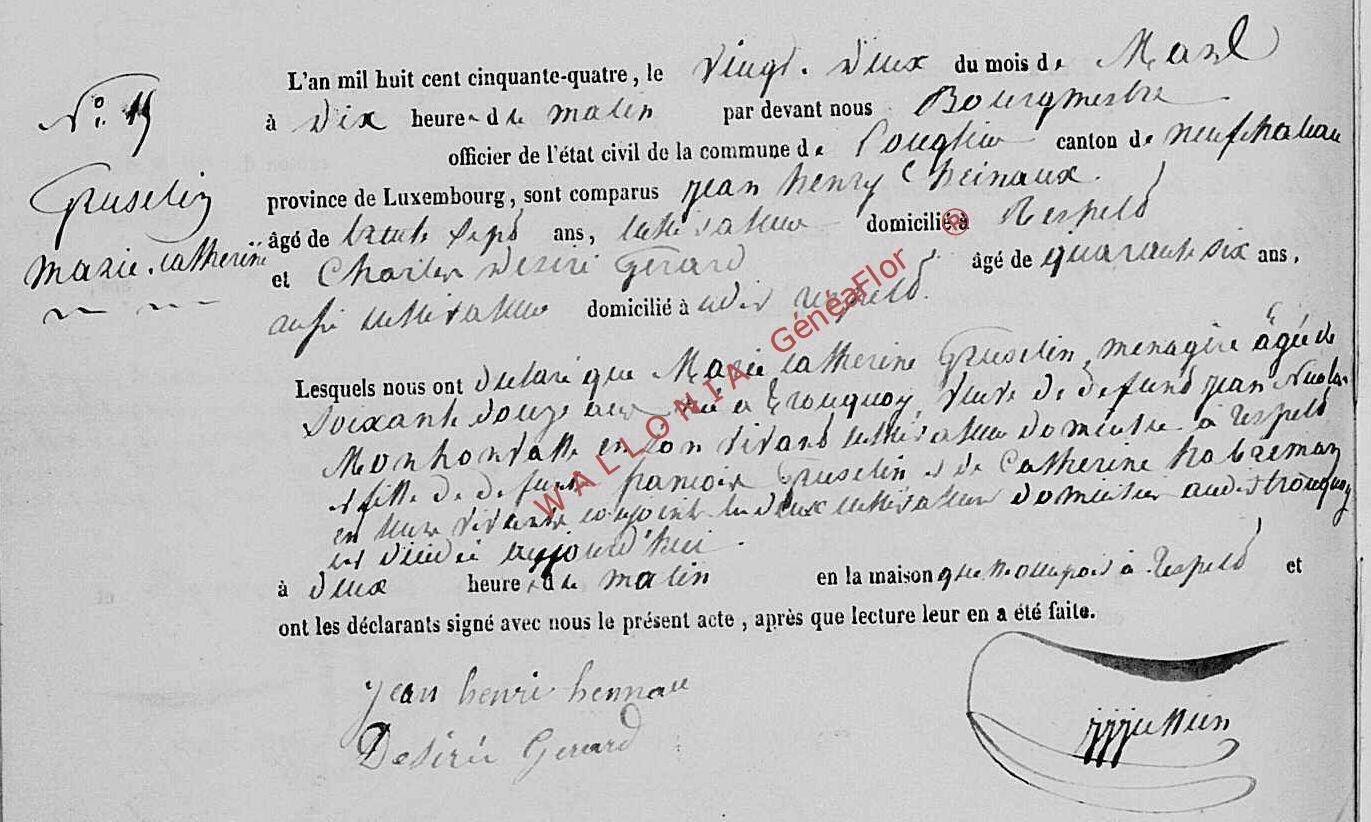 L'an mil huit cent cinquante-quatre, le vingt-deux du mois de
N° 15
à dix heures du matin par devant nous Bourgmestre
officier de l'état civil de la commune de canton de neufchateau
Gruselin
province de Luxembourg, sont comparus jean henry
Marie-Catherine
âgé de trente sept ans, cultivateur domicilié à Respelt
et Charles Désiré Gérard âgé de quarante six ans,
aussi cultivateur domicilié à udit respelt.
Lesquels nous ont déclaré que Marie catherine Gruselin, menagère âgée de
Soixante douze ans née a tronquoy, veuve de defunt jean Nicolas
Monhonvalle en son vivant cultivateur domicilié à respelt
et fille de defunts françois Gruselin et de Catherine
en leur vivant conjoints les deux cultivateurs domiciliés audit tronquoy
est décédée aujourd'hui.
à deux heures du matin en la maison que à respelt et
ont les déclarants signé avec nous le présent acte, après que lecture leur en a été faite.
jean henri hennau
Désirée Gerard
WALLONIA GénéaFlor ®